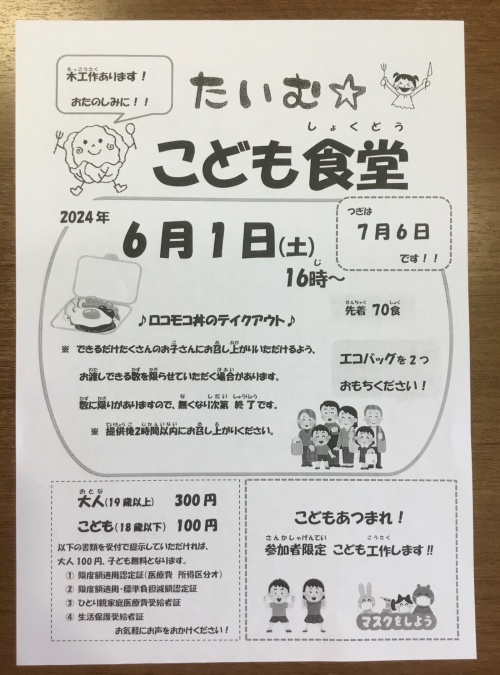 木工作あります！
おたのしみに！！
たいむ☆
こども食堂
2024年
6月1日(土)
16時～
つぎは
7月6日
です！！
♪ロコモコ丼のテイクアウト♪
先着 70食
※ できるだけたくさんのお子さんにお召し上がりいただけるよう、
お渡しできる数を限らせていただく場合があります。
数に限りがありますので、無くなり次第 終了です。
※ 提供後2時間以内にお召し上がりください。
エコバッグを2つ
おもちください！
大人(19歳以上) 300円
こども(18歳以下) 100円
以下の書類を受付で提示していただければ、
大人100円、子ども無料となります。
① 限度額適用認定証(医療費 所得区分オ)
② 限度額適用・標準負担減額認定証
③ ひとり親家庭医療費受給者証
④ 生活保護受給者証
お気軽にお声をおかけください！
こどもあつまれ！
参加者限定 こども工作します!!
マスクをしよう